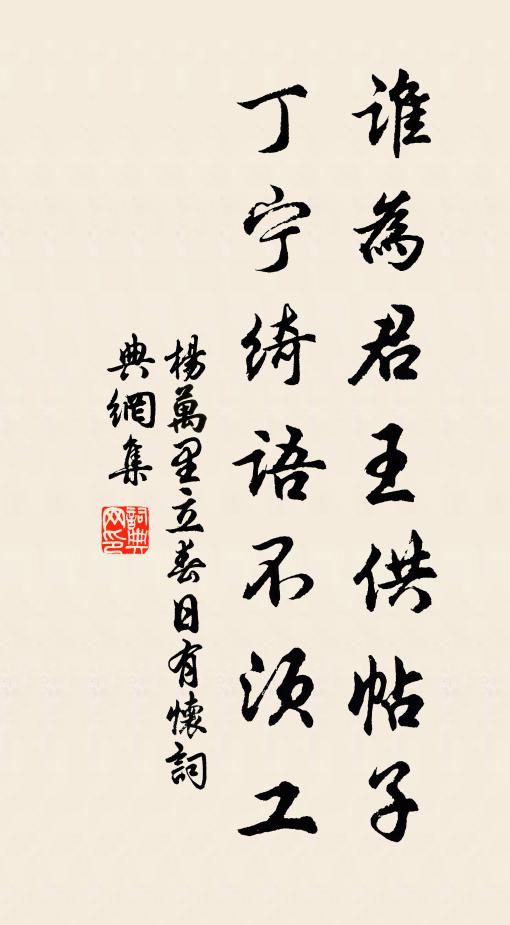 誰為君王供帖子
丁宁綺語不須工
楊萬里立春日有懷詞
典網集
詞典網印